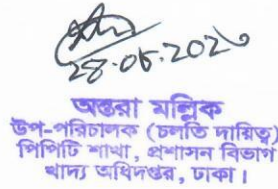 28.05.2020
অন্তরা মল্লিক
উপ-পরিচালক (চলতি দায়িত্ব)
পিপিটি শাখা, প্রশাসন বিভাগ
খাদ্য অধিদপ্তর, ঢাকা।